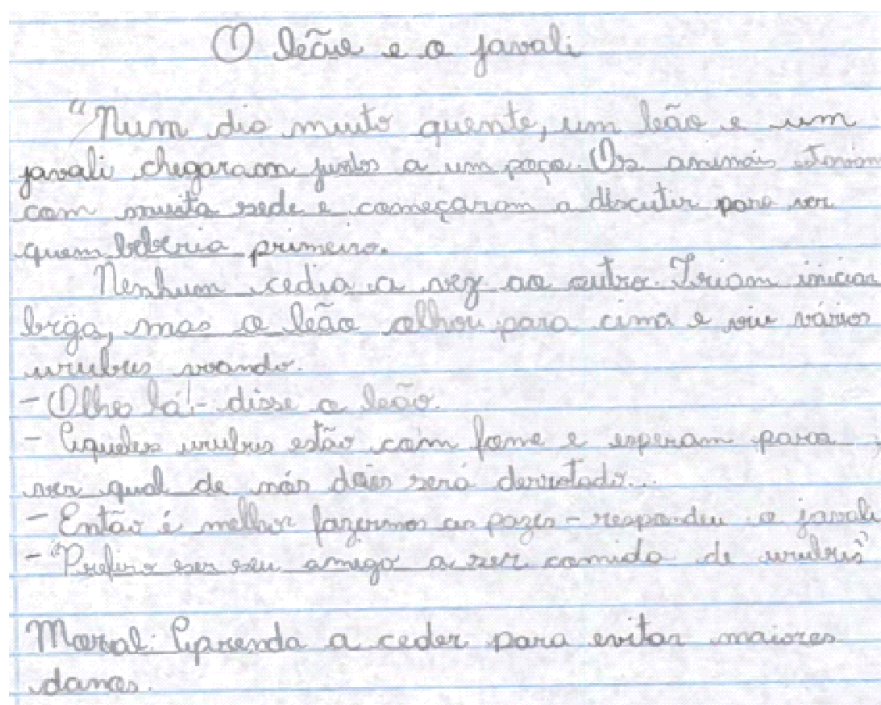 O leão e o javali
"Num dia muito quente, um leão e um
javali chegaram juntos a um poço. Os animais estavam
com muita sede e começaram a discutir para ver
quem beberia primeiro.
Nenhum cedia a vez ao outro. Iriam iniciar
briga, mas o leão olhou para cima e viu vários
urubus voando.
- Olhe lá! - disse o leão.
- Aqueles urubus estão com fome e esperam para
ver qual de nós dois será derrotado.
- Então é melhor fazermos as pazes - respondeu o javali
- "Prefiro ser seu amigo a ser comida de urubus"
Moral: Aprenda a ceder para evitar maiores
danos.